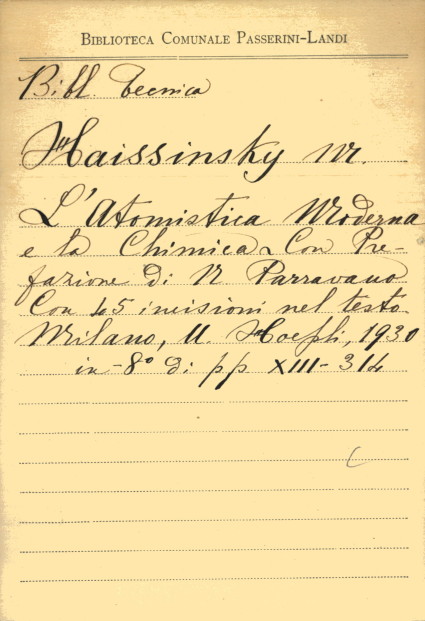 BIBLIOTECA COMUNALE PASSERINI-LANDI
Bibl. Tecnica
Haissinsky M.
L'Atomistica Moderna
e la Chimica. Con Pre-
fazione di N. Parravano
Con 45 incisioni nel testo.
Milano, U. Hoepli, 1930
in-8º di pp XIII-314